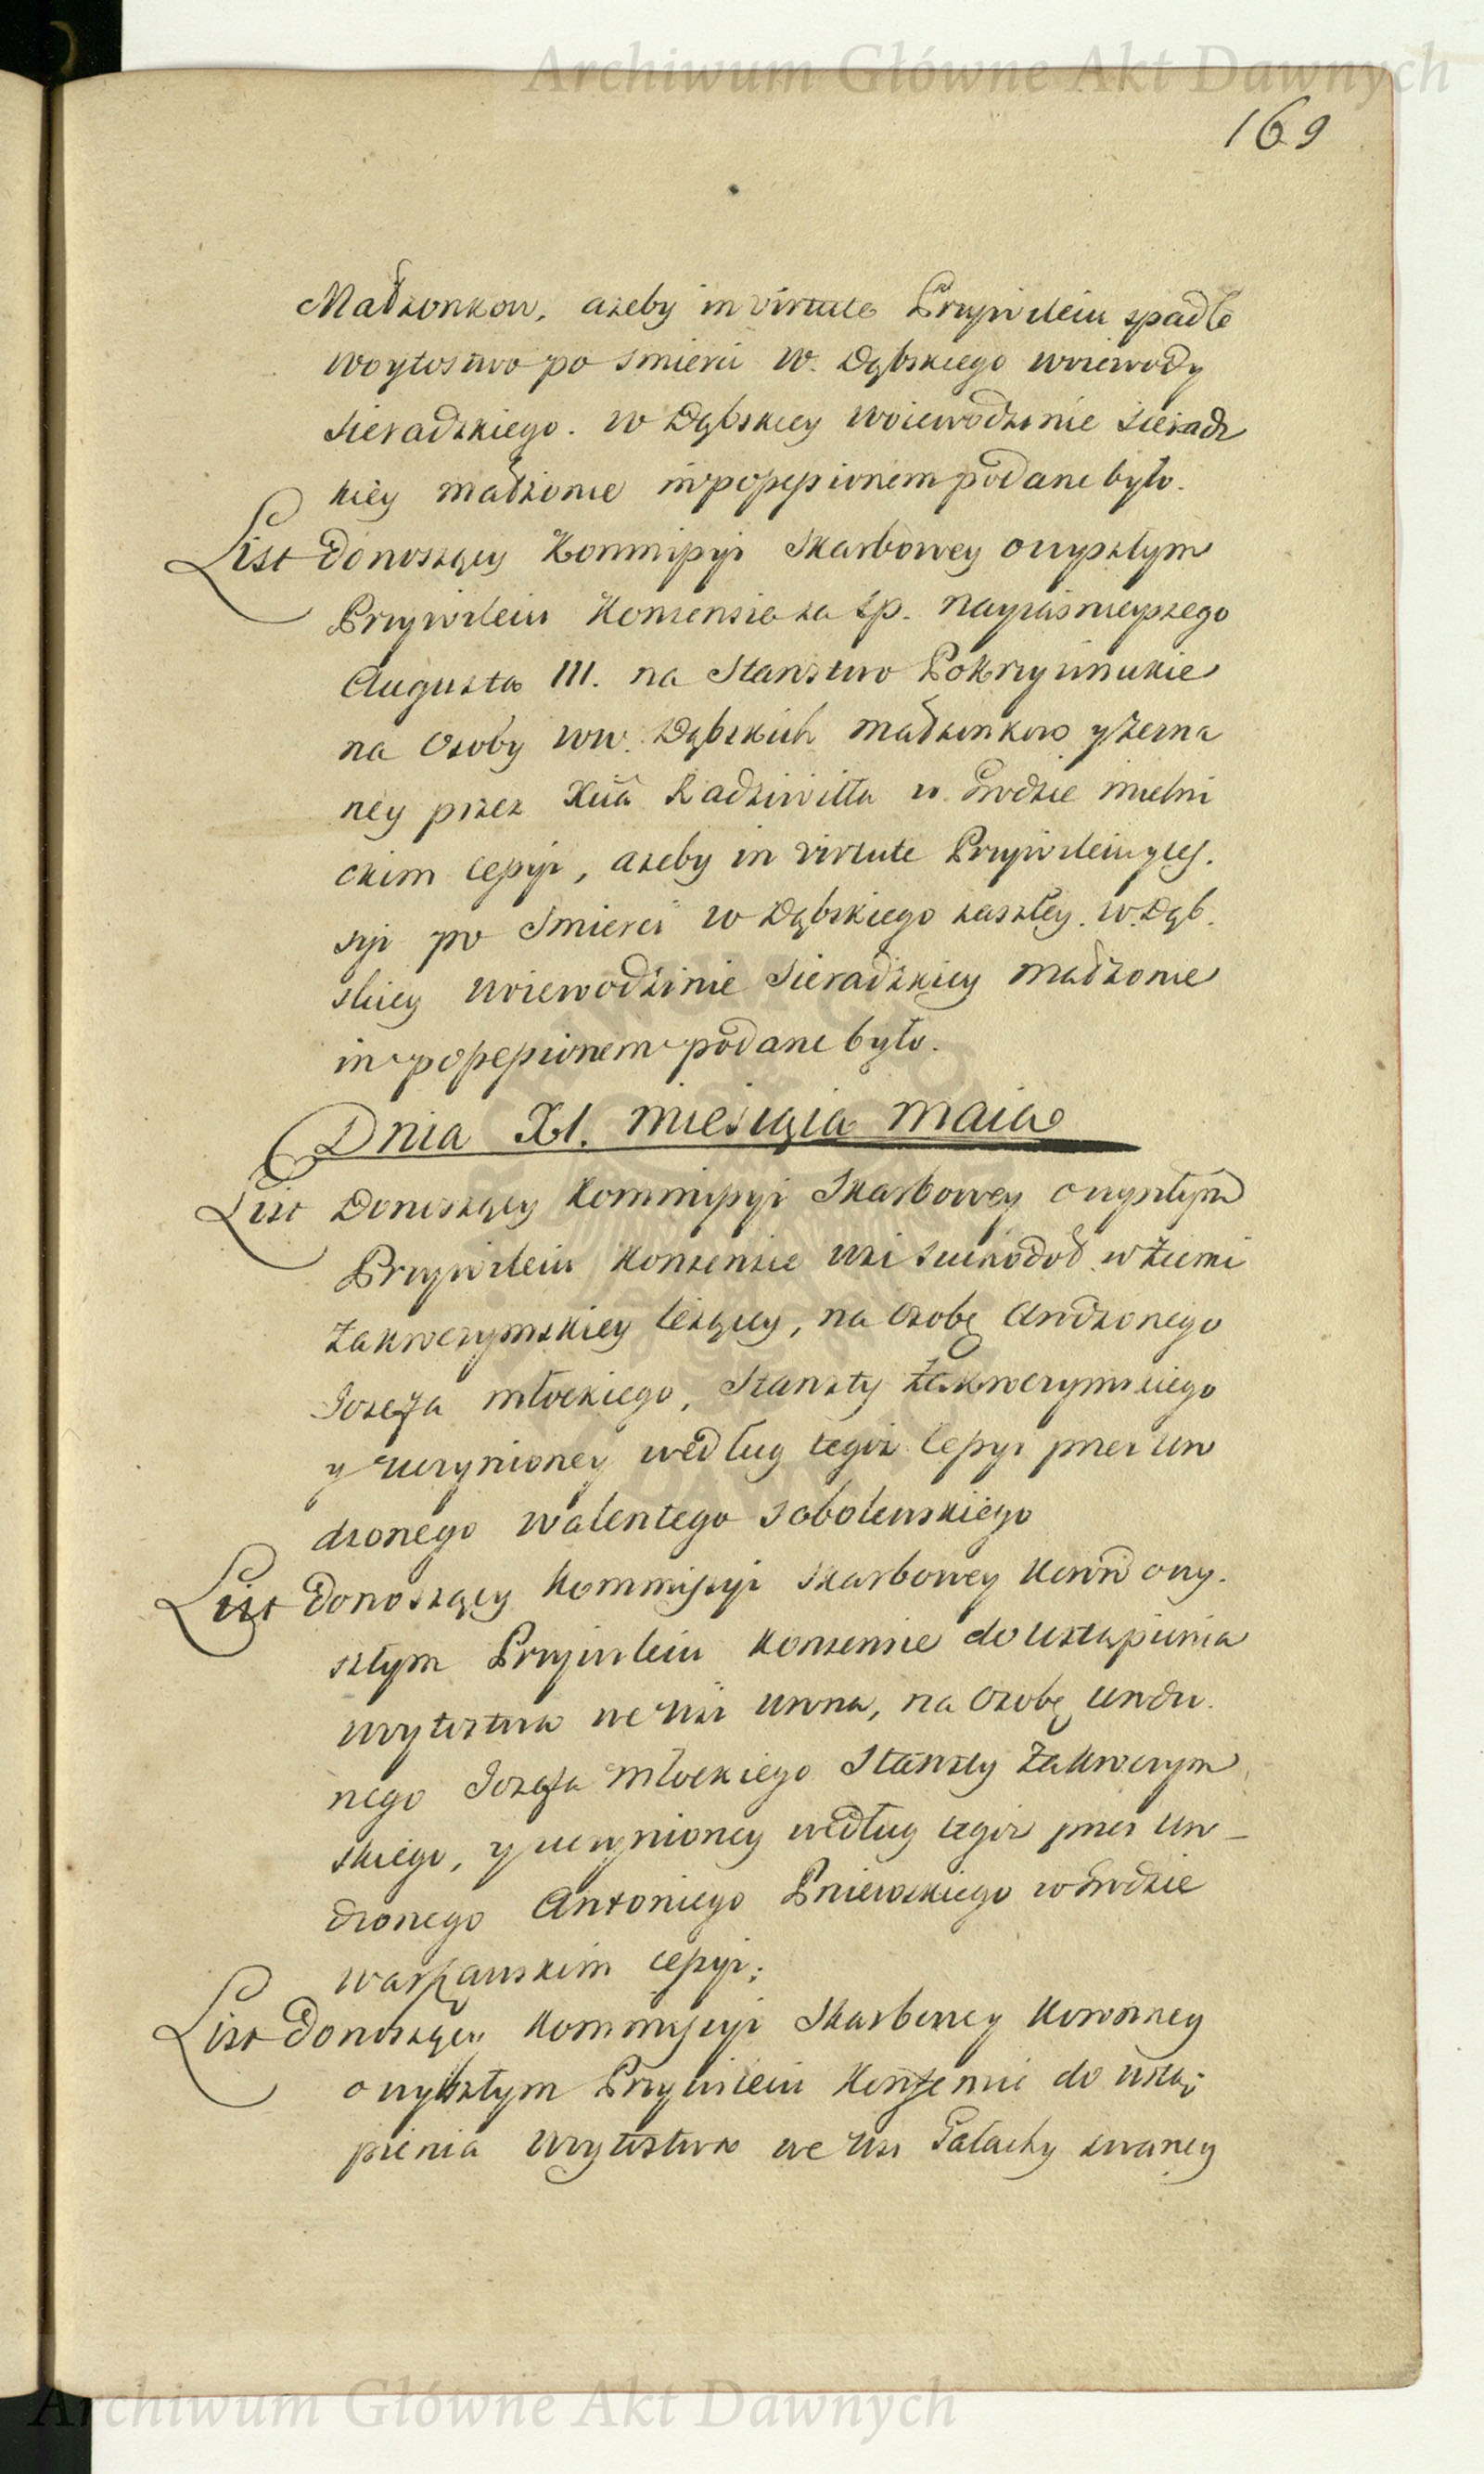 Archiwum Główne Akt Dawnych
169
Małżonkow, ażeby in virtute Przywileiu spadłe
woytostwo po smierci W. Dąbskiego woiewody
Sieradzkiego. W Dąbskiey woiewodzinie Sieradz
kiey małżonce in possessionem podane było.
List donoszący Kommissyi Skarbowey o wyszłym
Przywileiu Konsensie za śp. Nayiasnieyszego
Augusta III. na Starostwo Pokrzywnickie
na Osoby WW. Dąbskich małżonkow y zezna
ney przez Xcia Radziwiłła w Grodzie mielni
ckim cessyi, ażeby in virtute Przywileiu y ces.
syi po Smierci W Dąbskiego zaszłey. W. Dąb.
skiey woiewodzinie Sieradzkiey małżonce
in possessionem podane było.
Dnia XI. miesiąca maia
List Donoszący Kommissyi Skarbowey o wyszłym
Przywileiu Konsensie wsi w Ziemi
Zakroczymskiey leżącey, na Osobę Urodzonego
Jozefa młockiego, Starosty Zakroczymskiego
y uczynioney według tegoż cessyi przez Uro
dzonego Walentego Sobolewskiego
List donoszący Kommissyi Skarbowey Koron o wy.
szłym Przywileiu Konsensie do Ustąpienia
woytostwa we wsi na Osobę Urodzo.
nego Jozefa Młockiego Starosty Zakroczym
skiego, y uczynioney według tegoż przez Uro-
dzonego Antoniego Pniewskiego w Grodzie
warszawskim cessyi;
List donoszący Kommissyi Skarbowey Koronney
o wyszłym Przywileiu Konsensie do ustą-
pienia woytostwa we wsi Pałachy zwaney
Archiwum Główne Akt Dawnych